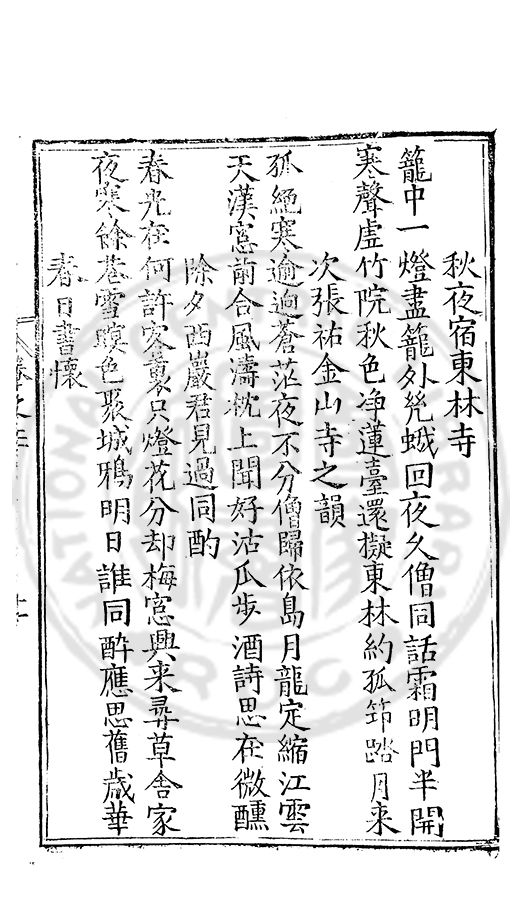 秋夜宿東林寺
籠中一燈盡籠外㡬蛾回夜久僧同話霜明門半開
寒聲虛竹院秋色净蓮臺還擬東林約孤筇踏月来
次張祐金山寺之韻
孤絕寒逾逈蒼茫夜不分僧歸依島月龍定縮江雲
天漢窓前合風濤枕上聞好沽瓜步酒詩思在微醺
除夕西巖君見過同酌
春光在何許客裏只燈花分却梅窓興来尋草舎家
夜寒餘巷雪暝色聚城鴉明日誰同醉應思舊歲華
春日書懷